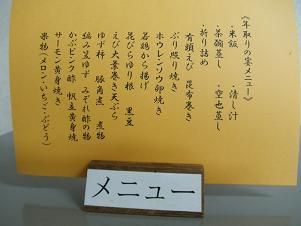 《年取りの宴メニュー》
・米飯 ・清し汁
・茶碗蒸し ・空也蒸し
・折り詰め
有頭えび 昆布巻き
ぶり照り焼き
ホウレンソウ卵焼き
若鶏から揚げ
花びらゆり根 黒豆
えび大葉巻き天ぷら
ゆず柿 豚角煮 煮物
編み笠ゆず みぞれ酢の物
かぶピンク酢 帆立黄身焼き
サーモン黄身焼き
果物(メロン・いちご・ぶどう)
メニュー